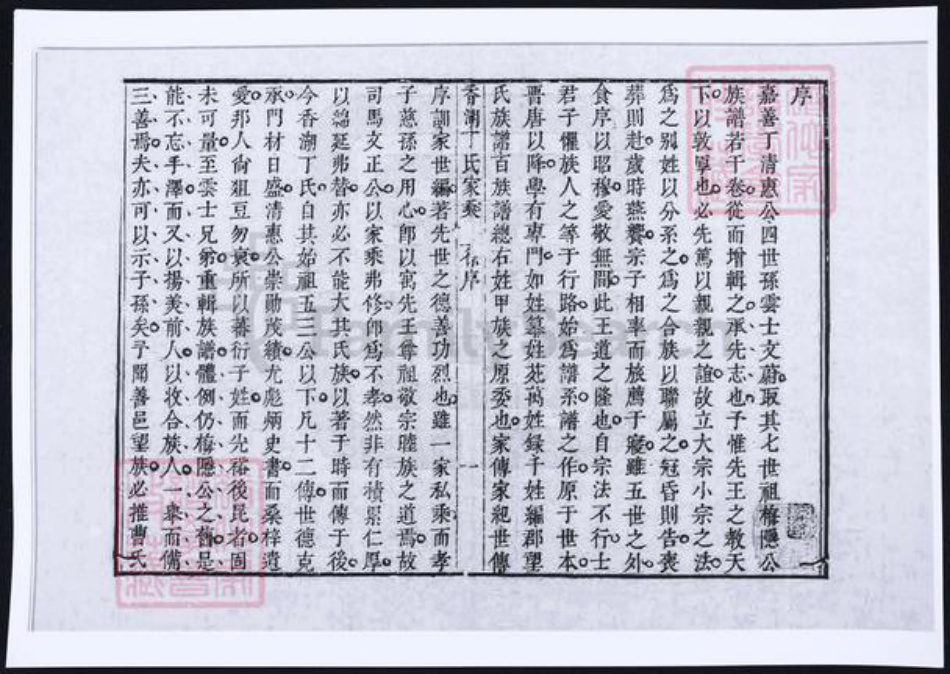 序
嘉善丁清惠公四世孫雲士文蔚取其七世祖梅隱公
族譜若干卷從而增輯之承先志也予惟先王之教天
下以敦厚也必先篤以親親之誼故立大宗小宗之法
爲之別姓以分系之爲之合族以聯屬之冠昏則告喪
葬則赴歲時燕饗宗子相率而旅薦于寢雖五世之外
食序以昭穆愛敬無間此王道之隆也自宗法不行士
君子懼族人之等于行路始爲譜系譜之作原于世本
晉唐以降學有專門如姓纂姓苑萬姓録千姓編郡望
氏族譜百族譜總右姓甲族之原委也家傳家紀世傳
香湖丁氏家乘 序 一
序訓家世編著先世之德善功烈也雖一家私乘而孝
子慈孫之用心卽以寓先王尊祖敬宗睦族之道焉故
司馬文正公以家乘弗修卽爲不孝然非有積累仁厚
以綿延弗替亦必不能大其氏族以著于時而傳于後
今香湖丁氏自其始祖五三公以下凡十二傳世德克
承門材日盛清惠公崇勛茂績尤彪炳史書而桑梓遺
愛邦人尙俎豆勿衰所以蕃衍子姓而光裕後昆者固
未可量至雲士兄弟重輯族譜體例仍梅隱公之舊是
能不忘手澤而又以揚美前人以收合族人一舉而備
三善焉夫亦可以示子孫矣予聞善邑望族必推曹氏
FamilySearch